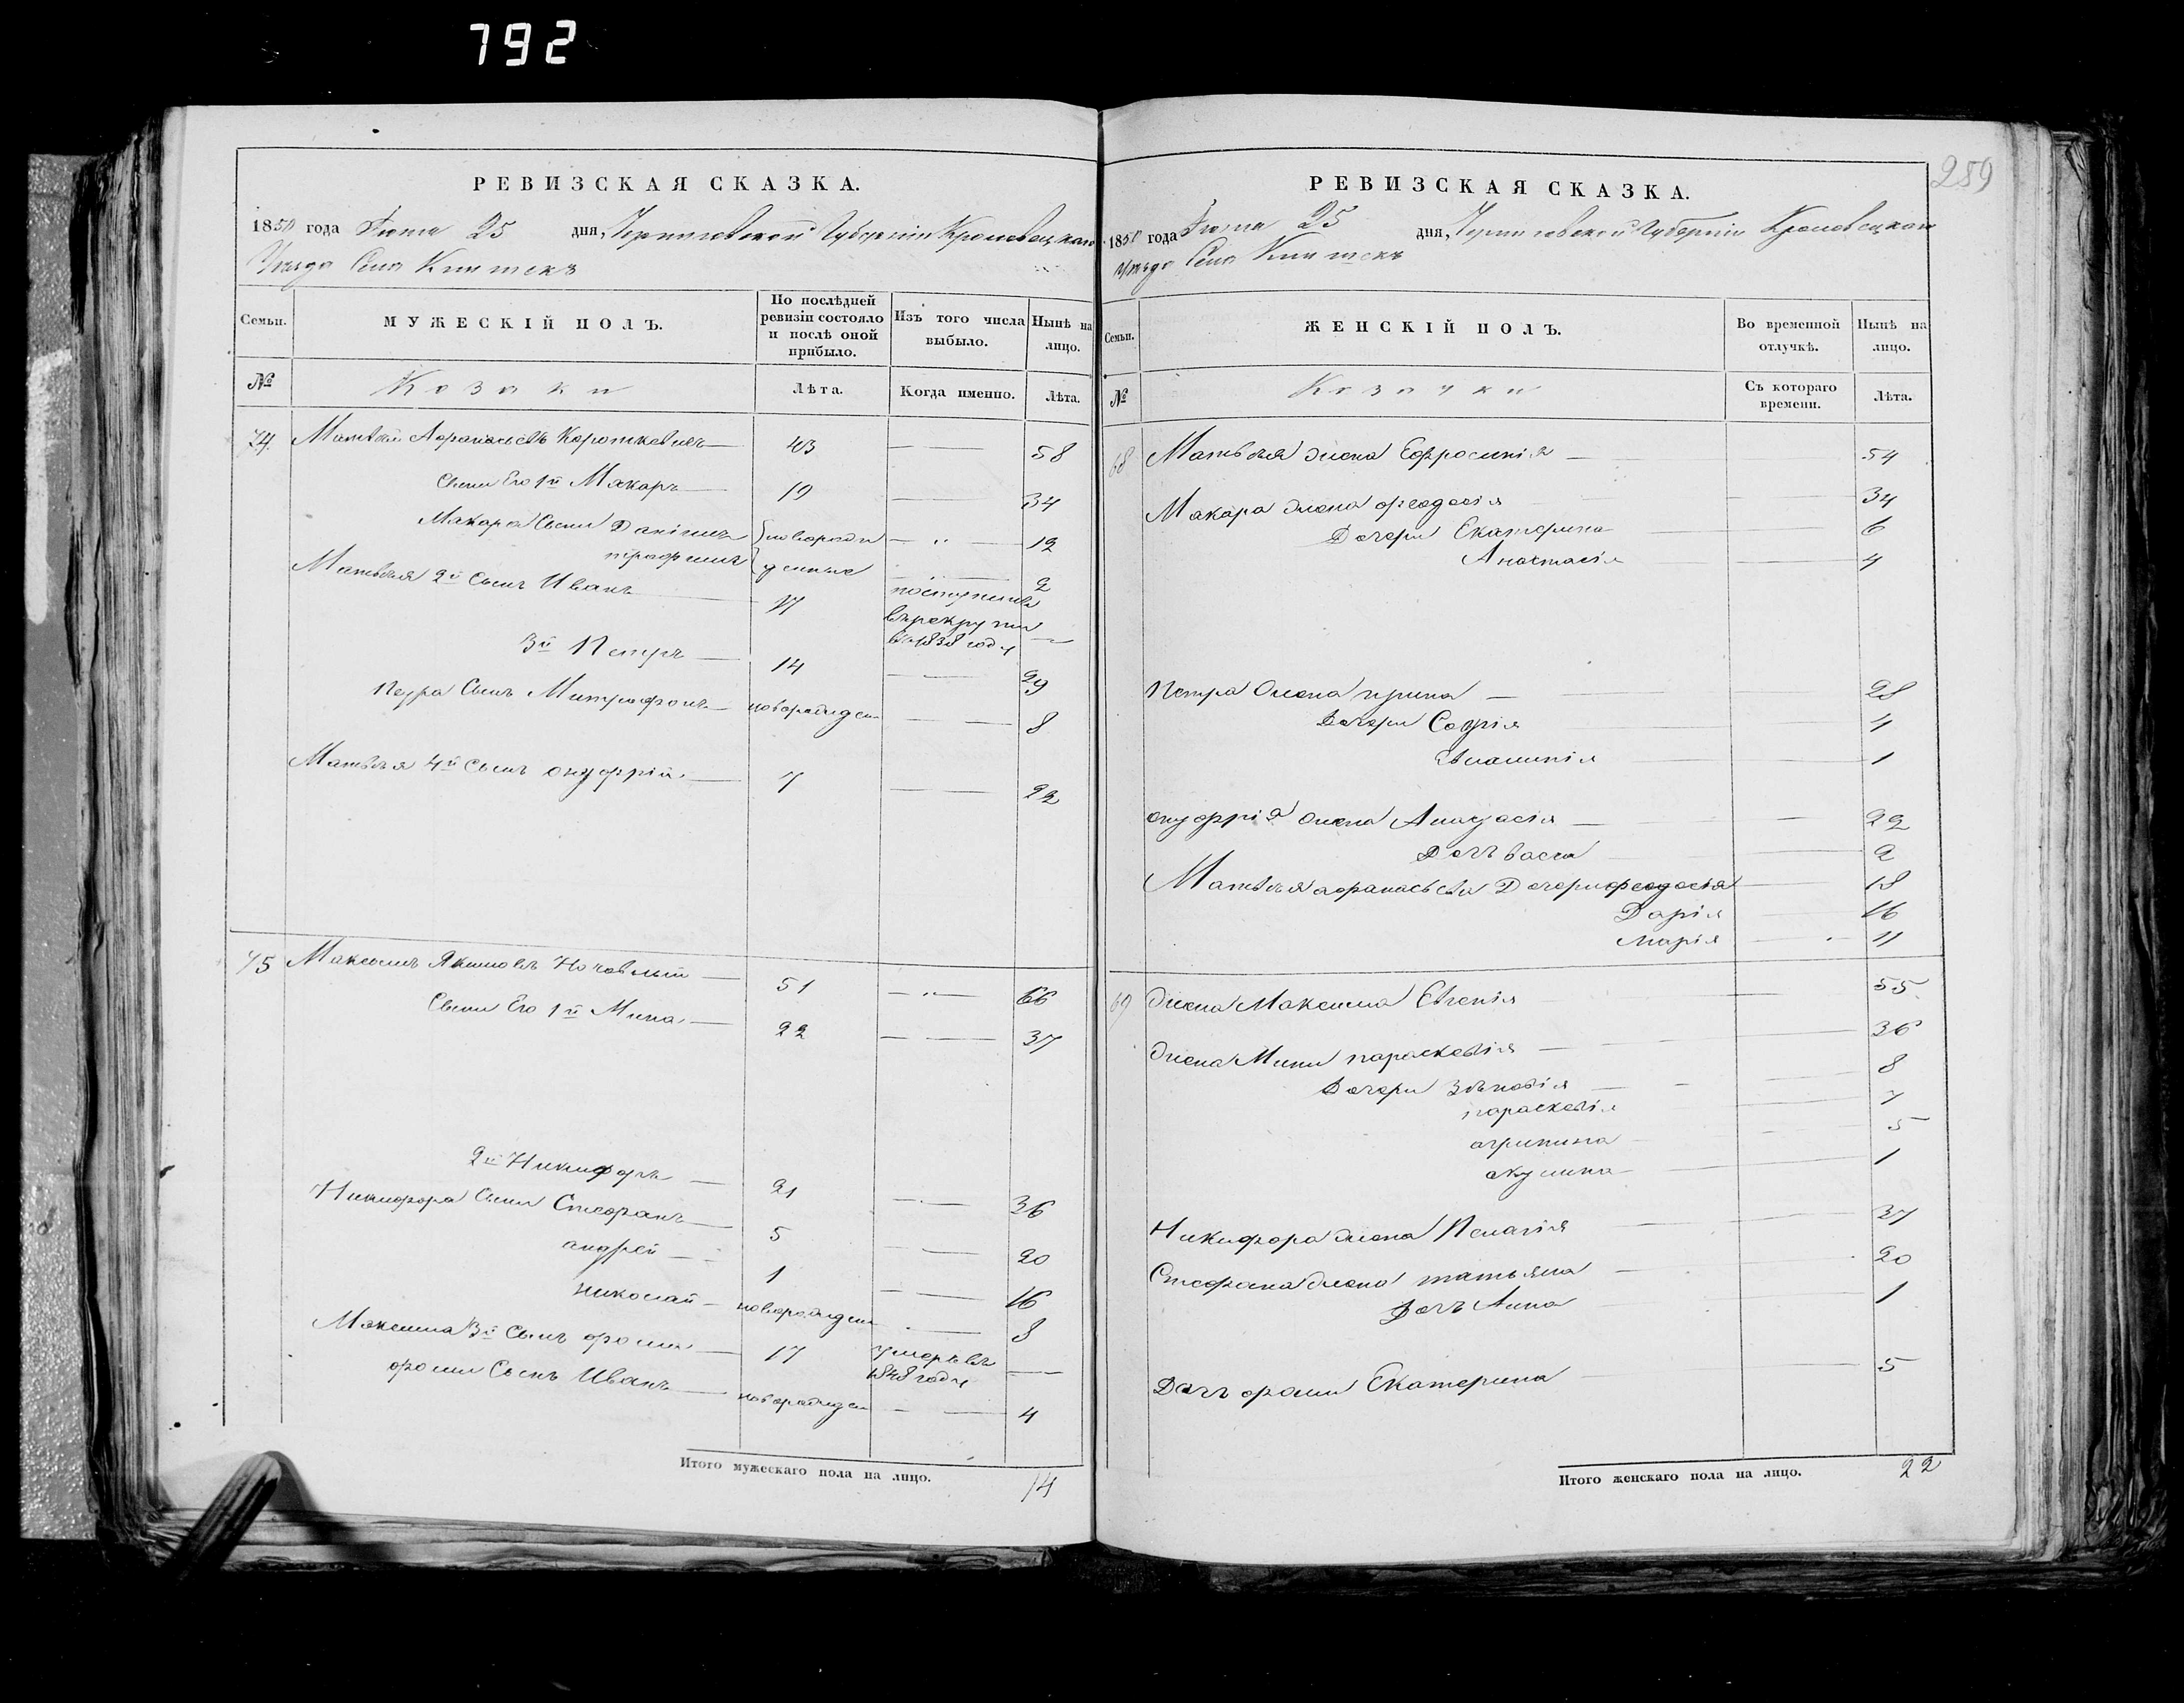 792
РЕВИЗСКАЯ СКАЗКА.
1850 года 25 дня, Черниговской Губернiи Кролевецкаго
Уѣзда Села
Семьи.
МУЖЕСКIЙ ПОЛЪ.
По послѣдней ревизiи состояло и послѣ оной прибыло.
Изъ того числа выбыло.
Нынѣ на лицо.
№
Козаки
Лѣта.
Когда именно.
Лѣта.
74. Матвѣй Афанасьевъ Короткевичъ — 43 — 58
Сыны Его 1й Макаръ — 19 — 34
Макара Сыны Данiилъ новорож — 12
трофимъ денные — 2
Матвѣя 2й Сынъ Иванъ 17 поступилъ въ рекруты в 1838 году —
3й Петръ — 14 — 29
Петра Сынъ Митрофанъ — новорожден — 8
Матвѣя 4й Сынъ онуфрiй — 7 — 22
75 Максимъ Якимовъ — 51 — 66
Сыны Его 1й Мина — 22 — 37
2й Никифоръ — 21 — 36
Никифора Сыны Стефанъ — 5 — 20
андрей — 1 — 16
николай — новорожден — 8
Максима 3й Сынъ фома — 17 умеръ въ 1848 году —
фомы Сынъ Иванъ — новорожден — 4
Итого мужескаго пола на лицо. 14
259
РЕВИЗСКАЯ СКАЗКА.
1850 года 25 дня, Черниговской Губернiи Кролевецкаго
Уѣзда Села
Семьи.
ЖЕНСКIЙ ПОЛЪ.
Во временной отлучкѣ.
Нынѣ на лицо.
№
Козачки
Съ котораго времени.
Лѣта.
68 Матвѣя жена Ефросинiя — 54
Макара жена феодосiя — 34
Дочери Екатерина — 6
Анастасiя — 4
Петра жена ирина — 28
Дочери Софiя 4
Евлампiя — 1
онуфрiя жена Анастасiя — 22
Дочь васса — 2
Матвѣя афанасьева Дочери феодосiя — 18
Дарiя 16
марiя — 11
69 жена Максима Евгенiя — 55
жена Мины параскевiя — 36
Дочери Зѣновiя — 8
параскевiя 7
агрипина 5
акулина — 1
Никифора жена Пелагiя — 37
Стефана жена татьяна — 20
Дочь Анна 1
Дочь фомы Екатерина — 5
Итого женскаго пола на лицо. 22